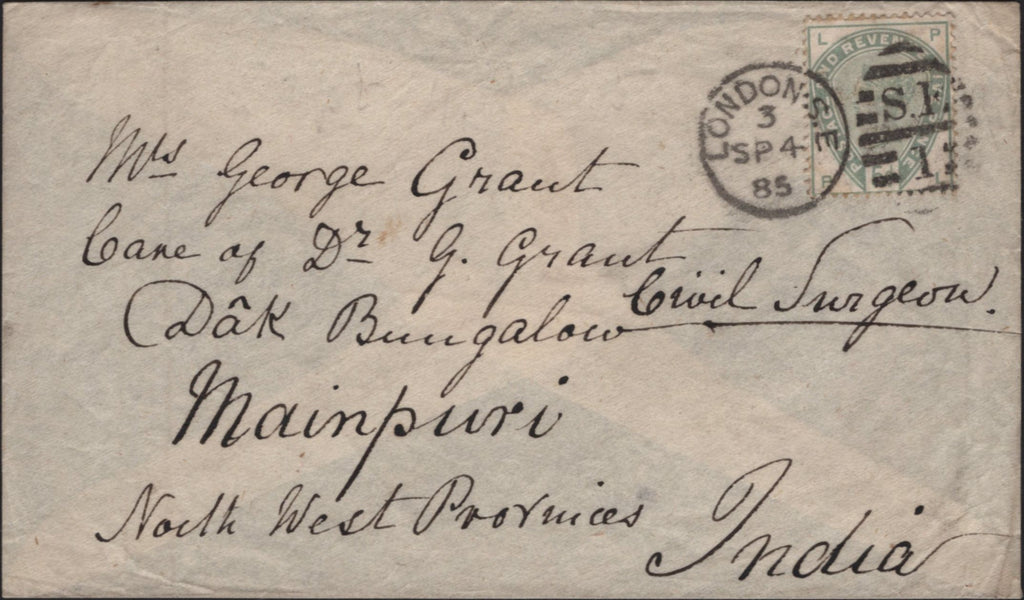 L P
ND REVEN
LONDON·S.E
3
SP 4
85
S.E
1
Mrs George Grant
Care of Dr G. Grant
Civil Surgeon.
Dâk Bungalow
Mainpuri
North West Provinces
India